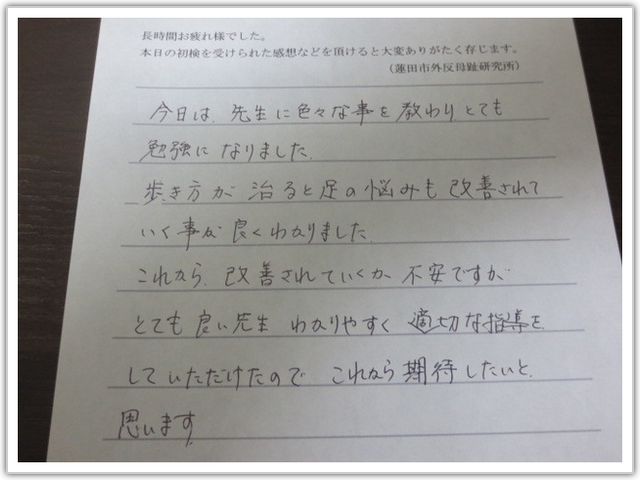 長時間お疲れ様でした。
本日の初検を受けられた感想などを頂けると大変ありがたく存じます。
(蓮田市外反母趾研究所)
今日は、先生に色々な事を教わりとても
勉強になりました。
歩き方が治ると足の悩みも改善されて
いく事が良くわかりました
これから、改善されていくか不安ですが
とても良い先生 わかりやすく適切な指導を
していただけたので これから期待したいと
思います